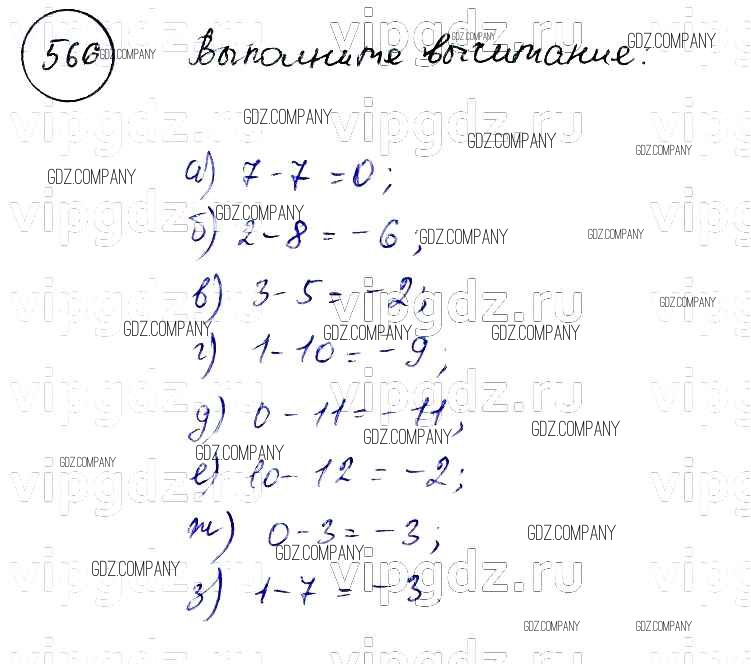 566 Выполните вычитание:
а) 7 - 7 = 0;
б) 2 - 8 = - 6;
в) 3 - 5 = - 2;
г) 1 - 10 = - 9;
д) 0 - 11 = - 11;
е) 10 - 12 = - 2;
ж) 0 - 3 = - 3;
з) 1 - 7 = - 3
vipgdz.ru
GDZ.COMPANY